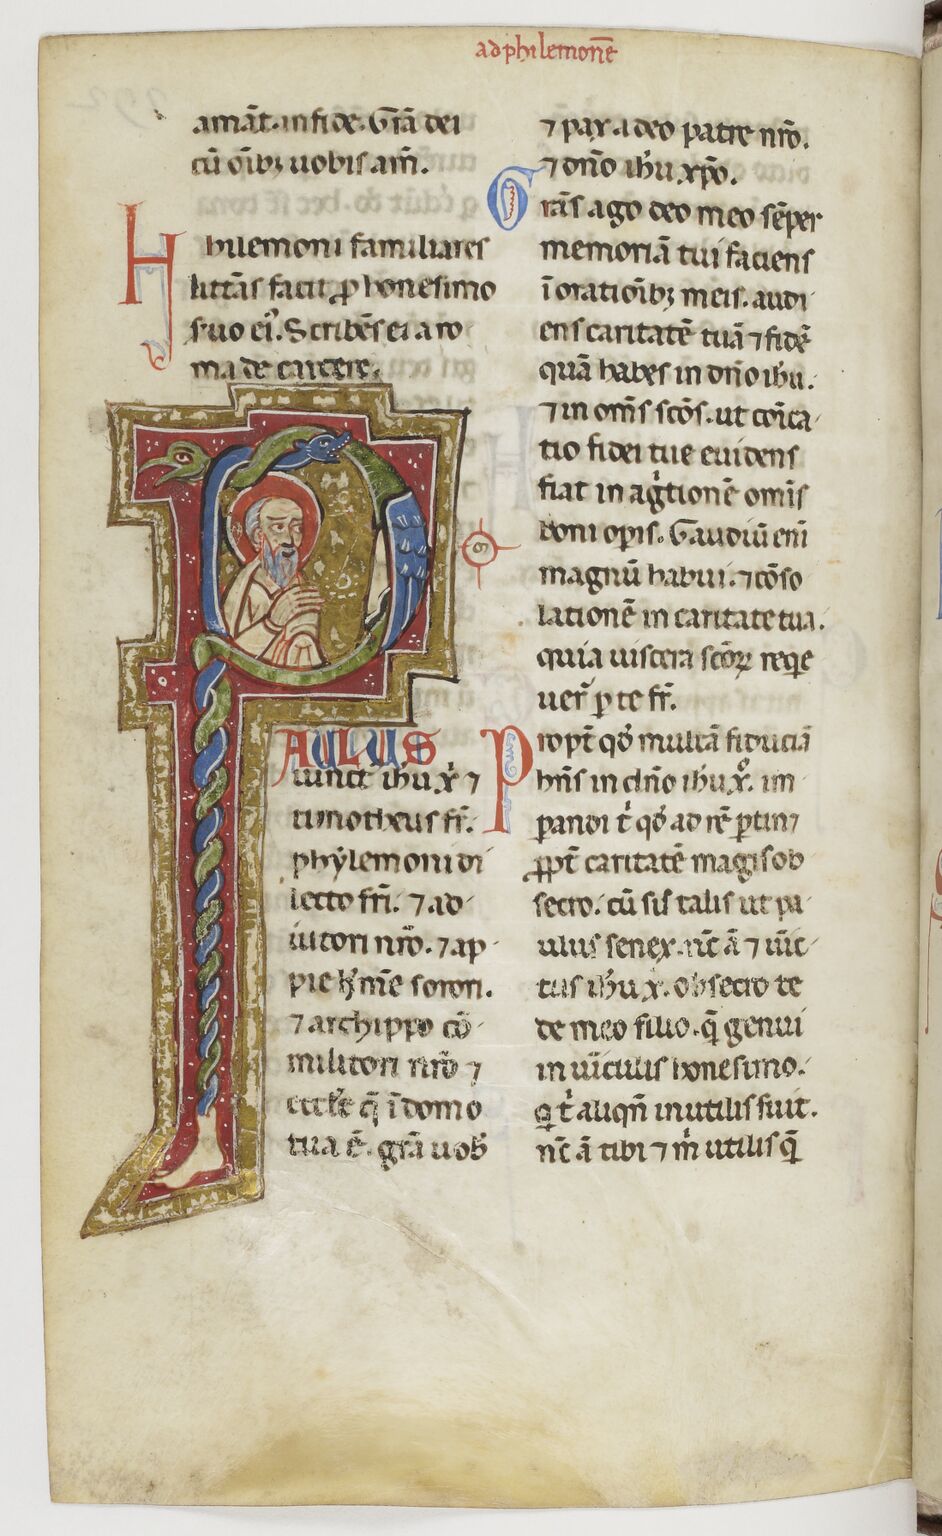 ad philemonē
amāt. in fide. Gr̄a dei
cū oīb; uobis am̄.
H hilemoni familiares
litt̄as facit ꝓ honesimo
suo ei'. Scribēs ei a ro
ma de carcere.
PAULUS
uinct' ih̄u xp̄i ⁊
timotheus fr̄.
phylemoni di
lecto fr̄i. ⁊ ad
iutori nr̄o. ⁊ ap
pie soror̄i.
⁊ archippo cō
militoni nr̄o ⁊
eccl̄e q̄ ī domo
tua ē. gr̄a uob̄
⁊ pax. a deo patre nr̄o.
⁊ dn̄o ih̄u xp̄o.
Gr̄as ago deo meo sēper
memoriā tui faciens
ī orationīb; meis. audi
ens caritatē tuā ⁊ fidē
quā habes in dn̄o ih̄u.
⁊ in om̄s sc̄os. ut cōīca
tio fidei tue euidens
fiat in agitionē om̄is
boni op̄is. Gaudiū eni
magnū habui. ⁊ cōso
lationē in caritate tua.
quia uiscera sc̄oꝝ reqie
uer̄ ꝑ te fr̄.
Propt̄ qd̄ multā fiduciā
hn̄s in dn̄o ih̄u x̄o. im
pandi t̄ qd̄ ad rē ꝑtin⁊
ꝓpt̄ caritatē magis ob
secro. cū sis talis ut pa
ulus senex. nc̄ ā ⁊ uīc
tus ih̄u x̄. obsecro te
de meo filio. q̄ genui
in uīculis honesimo.
q̇ t̄ aliqn̄ inutilis fuit.
nc̄ ā tibi ⁊ m̄ utilis q̄